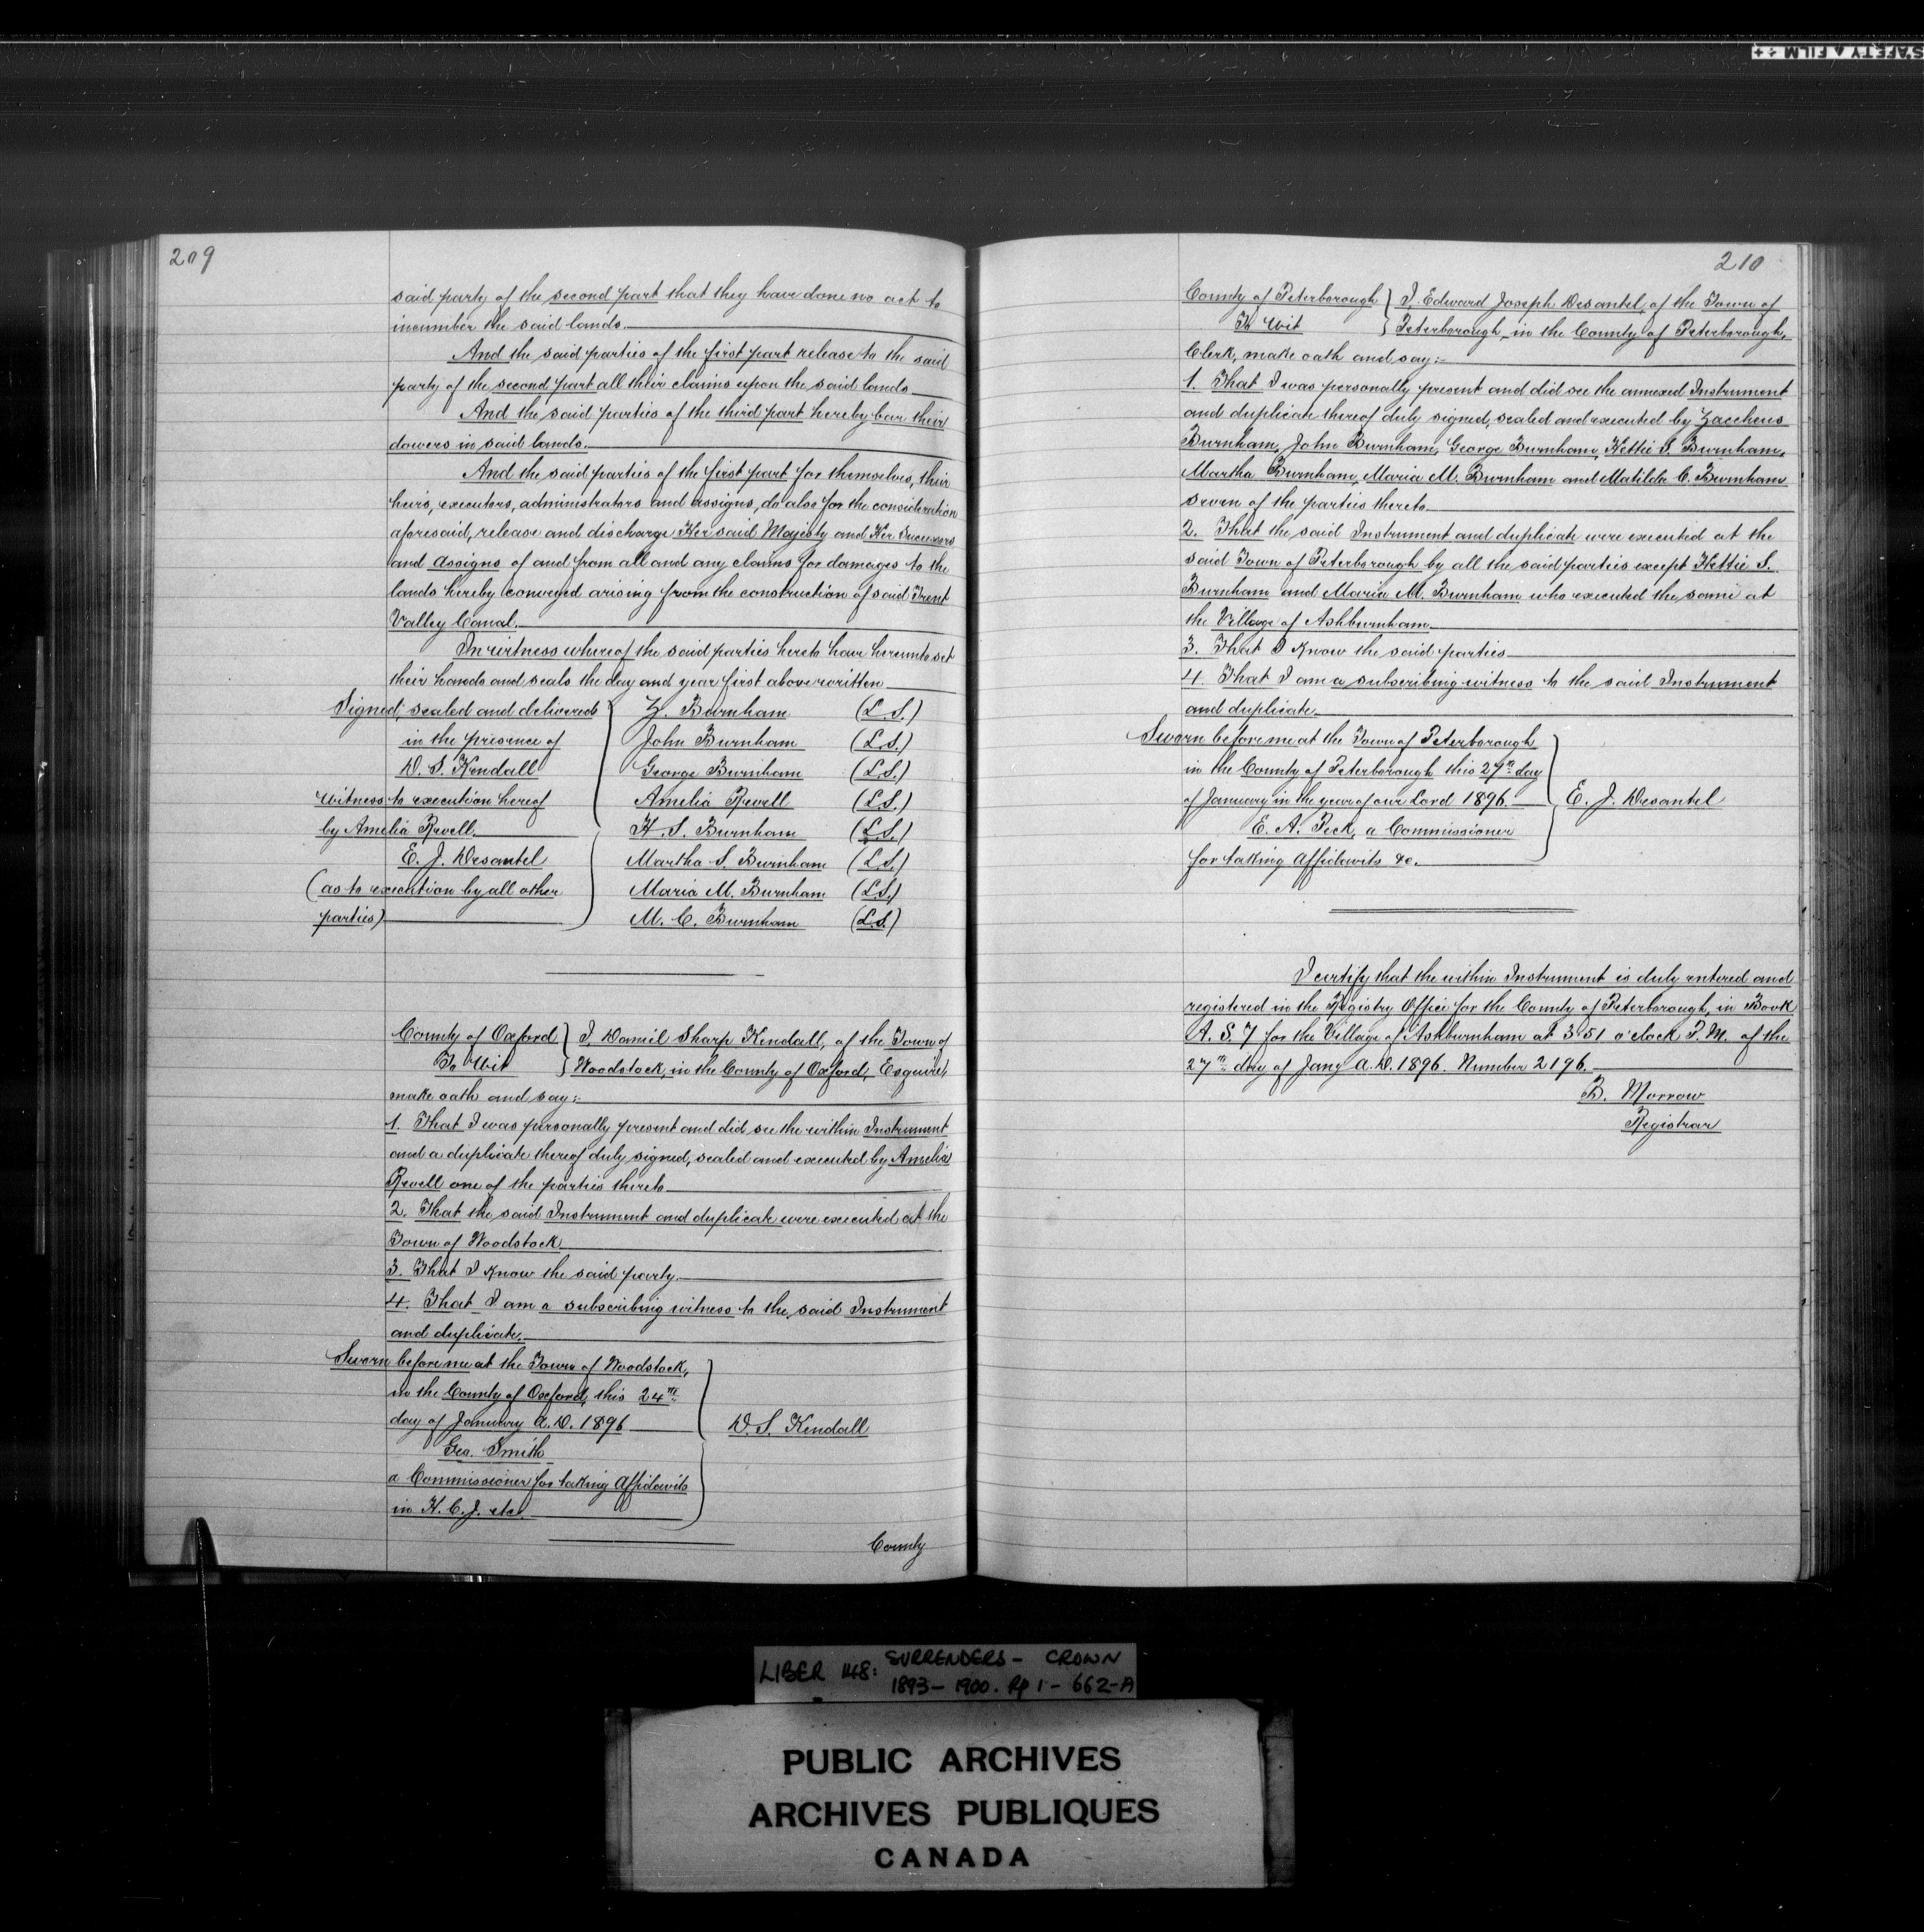 SAFETY A FILM ++
209
said party of the second part that they have done no act to
incumber the said lands.
And the said parties of the first part release to the said
party of the second part all their claims upon the said lands
And the said parties of the third part hereby bar their
dowers in said lands.
And the said parties of the first part for themselves, their
heirs, executors, administrators and assigns, do also for the consideration
aforesaid, release and discharge Her said Majesty and Her Successors
and assigns of and from all and any claims for damages to the
lands hereby conveyed arising from the construction of said Trent
Valley Canal.
In witness whereof the said parties hereto have hereunto set
their hands and seals the day and year first above written
Signed, sealed and delivered Z. Burnham (L.S.)
in the presence of John Burnham (L.S.)
D. S. Kendall George Burnham (L.S.)
Witness to execution hereof Amelia Revell (L.S.)
by Amelia Revell. H. S. Burnham (L.S.)
E. J. Desantel Martha S. Burnham (L.S.)
(as to execution by all other Maria M. Burnham (L.S.)
parties) M. C. Burnham (L.S.)
County of Oxford } I, Daniel Sharp Kendall, of the Town of
To Wit } Woodstock, in the County of Oxford, Esquire,
make oath and say:-
1. That I was personally present and did see the within Instrument
and a duplicate thereof duly signed, sealed and executed by Amelia
Revell one of the parties thereto
2. That the said Instrument and duplicate were executed at the
Town of Woodstock
3. That I know the said party.
4. That I am a subscribing witness to the said Instrument
and duplicate.
Sworn before me at the Town of Woodstock,
in the County of Oxford, this 24th
day of January A.D. 1896 D. S. Kendall
Geo. Smith
a Commissioner for taking Affidavits
in H.C.J. etc.
County
210
County of Peterborough } I, Edward Joseph Desantel, of the Town of
To Wit } Peterborough, in the County of Peterborough,
Clerk, make oath and say:-
1. That I was personally present and did see the annexed Instrument
and duplicate thereof duly signed, sealed and executed by Zaccheus
Burnham, John Burnham, George Burnham, Hettie S. Burnham,
Martha Burnham, Maria M. Burnham and Matilda C. Burnham
seven of the parties thereto
2. That the said Instrument and duplicate were executed at the
said Town of Peterborough by all the said parties except Hettie S.
Burnham and Maria M. Burnham who executed the same at
the Village of Ashburnham
3. That I know the said parties
4. That I am a subscribing witness to the said Instrument
and duplicate.
Sworn before me at the Town of Peterborough
in the County of Peterborough this 27th day
of January in the year of our Lord 1896. E. J. Desantel
E. A. Peck, a Commissioner
for taking Affidavits &c.
I certify that the within Instrument is duly entered and
registered in the Registry Office for the County of Peterborough, in Book
A. S. 7 for the Village of Ashburnham at 3.51 o'clock P.M. of the
27th day of Jany A.D. 1896. Number 2196.
B. Morrow
Registrar
LIBER 148: SURRENDERS - CROWN
1893 - 1900. Pp 1 - 662-A
PUBLIC ARCHIVES
ARCHIVES PUBLIQUES
CANADA